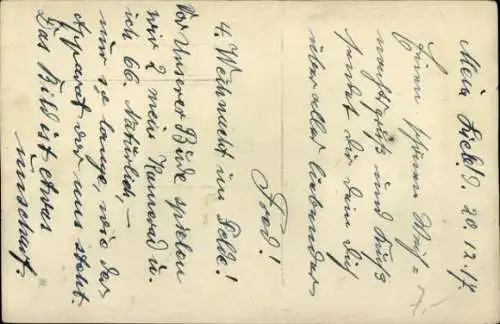 Mein Lieb! 20.12.17.
Einen schönen Weih=
nachtsgruß und Kuß
sendet dir dein Dich
über alles liebender
Fred!
4. Weihnacht im Felde!
Vor Unserer Bude spielen
wir 2 mein Kamerad u.
ich 66. Natürlich, —
nur so lange, wie der
Apparat vor uns steht.
Das Bild ist etwas
unscharf